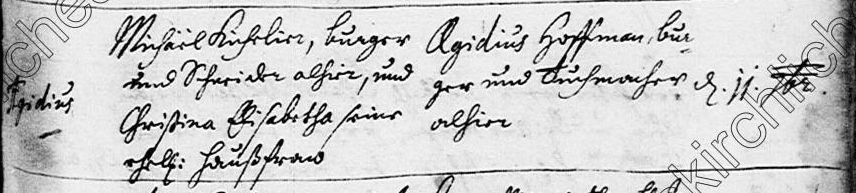 Ægidius
Michäel Kicheli⟨er⟩, burger
und Schneider alhier, und
Christina Elisabetha seine
ehel: haußfraw
Ægidius Hoffman, bur
ger und Tuchmacher
alhier
d. 11. 7br.